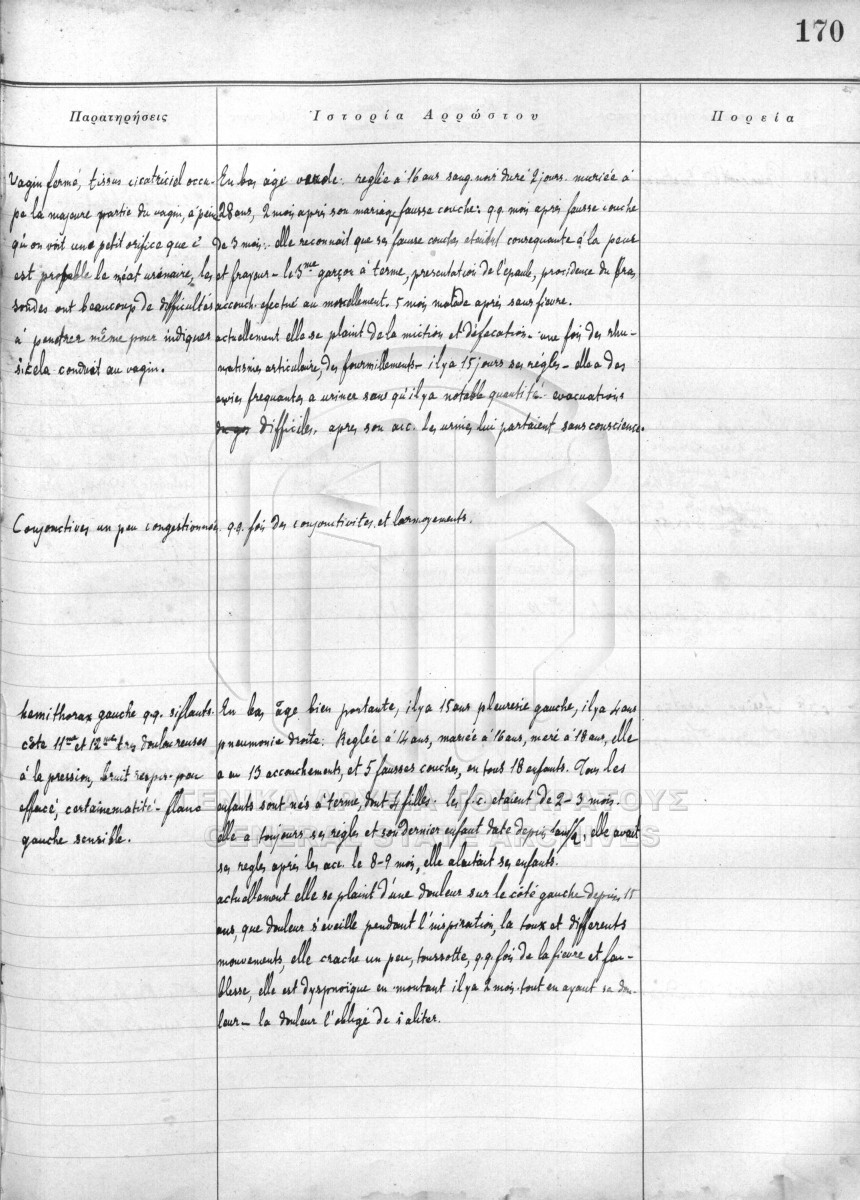 170
Παρατηρήσεις
Ἱστορία Ἀρρώστου
Πορεία
Vagin fermé, tissus cicatriciel occu-
pe la majeure partie du vagin, à pein
qu'on voit une petit orifice que c'
est probable le méat urénaire, les
sondes ont beaucoup de difficultés
à penetrer même pour indiquer
si cela conduit au vagin.
En bas âge reglée à 16 ans sang noir duré 2 jours. mariée à
28 ans, 2 mois après son mariage fausse couche; q.q. mois après fausse couche
de 3 mois; elle reconnait que ses fausse couches etaient consequante à la peur
et frayeur – le 3me garçon à terme, presentation de l'epaule, procidence du bras
accouch. efectué au morcellement. 5 mois malade après sans fievre.
actuellement elle se plaint de la miction et défecation – une fois des rhu-
matismes articulaire, des fourmillements – il y a 15 jours ses régles – elle a des
envies frequantes a uriner sans qu'il y a notable quantité – evacuations
difficiles. apres son acc. les urines lui partaient sans conscience.
Conjonctives un peu congestionnées
q.q. fois des conjonctivites et larmoyements.
hemithorax gauche q.q. siflants.
côte 11me et 12me très douloureuses
à la pression, bruit respir. peu
effacé, certaine matité – flanc
gauche sensible.
En bas âge bien portante, il y a 15 ans pleuresie gauche, il y a 4 ans
pneumonie droite. Reglée à 14 ans, mariée à 16 ans, meré à 18 ans, elle
a eu 13 accouchements, et 5 fausses couches, en tous 18 enfants. Tous les
enfants sont nés à terme, dont 4 filles. les f.c. etaient de 2–3 mois.
elle a toujours ses règles et son dernier enfant date depuis 1 an/2, elle avait
ses regles après les acc. le 8–9 mois, elle alaitait ses enfants.
actuellement elle se plaint d'une douleur sur le côté gauche depuis 15
ans, que douleur s'eveille pendant l'inspiration, la toux et differents
mouvements, elle crache un peu, toussotte, q.q. fois de la fievre et fai-
blesse, elle est dyspnoïque en montant il y a 2 mois. tout en ayant sa dou-
leur – la douleur l'obligé de s'aliter.
ΓΕΝΙΚΑ ΑΡΧΕΙΑ ΤΟΥ ΚΡΑΤΟΥΣ
GENERAL STATE ARCHIVES